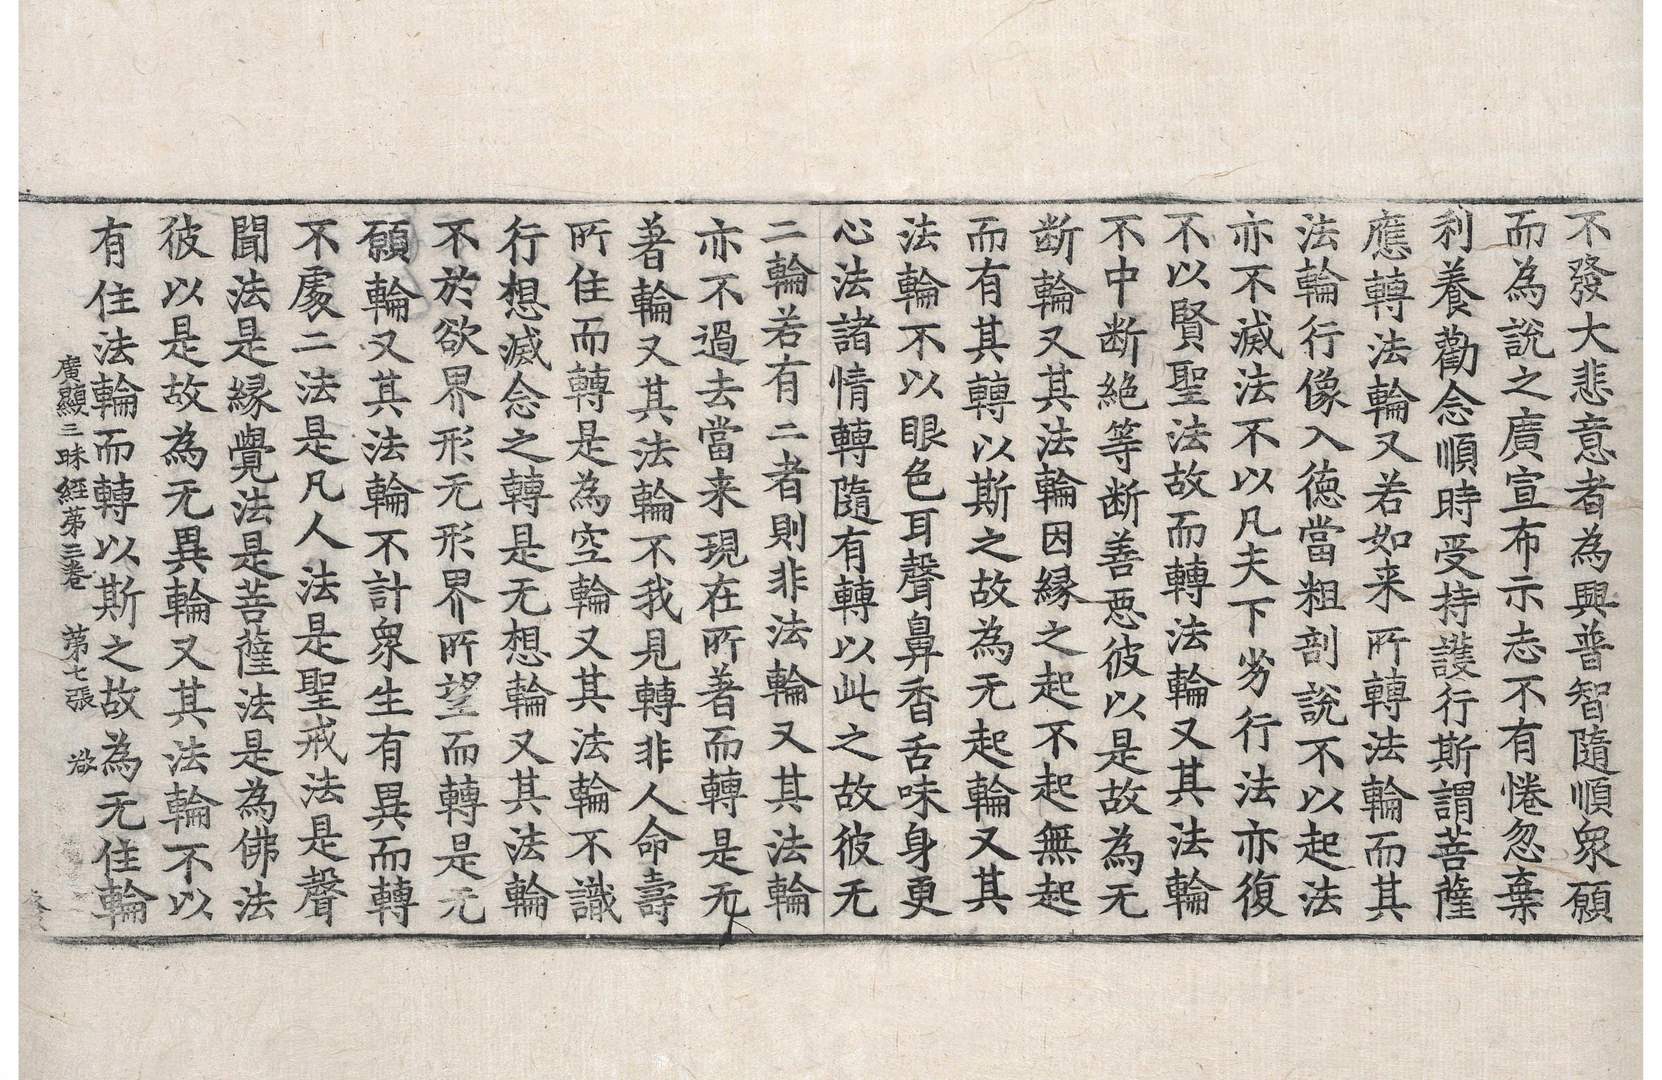 不發大悲意者為興普智隨順衆願
而為說之廣宣布示志不有惓忽棄
利養勸念順時受持護行斯謂菩薩
應轉法輪又若如来所轉法輪而其
法輪行像入德當粗剖說不以起法
亦不滅法不以凡夫下劣行法亦復
不以賢聖法故而轉法輪又其法輪
不中断絶等断善惡彼以是故為无
断輪又其法輪因縁之起不起無起
而有其轉以斯之故為无起輪又其
法輪不以眼色耳聲鼻香舌味身更
心法諸情轉隨有轉以此之故彼无
二輪若有二者則非法輪又其法輪
亦不過去當来現在所著而轉是无
著輪又其法輪不我見轉非人命壽
所住而轉是為空輪又其法輪不識
行想滅念之轉是无想輪又其法輪
不於欲界形无形界所望而轉是无
願輪又其法輪不計衆生有異而轉
不處二法是凡人法是聖戒法是聲
聞法是縁覺法是菩薩法是為佛法
彼以是故為无異輪又其法輪不以
有住法輪而轉以斯之故為无住輪
廣顯三昧經第三卷 第七張